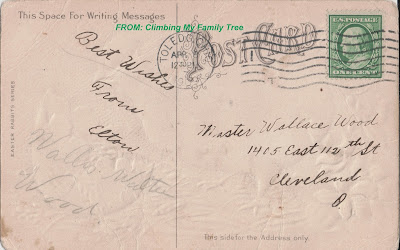 This Space For Writing Messages
FROM: Climbing My Family Tree
Best Wishes
From
Elton
Wood
EASTER RABBITS SERIES
POST CARD
TOLEDO
APR
U.S. POSTAGE
ONE CENT
Master Wallace Wood
1405 East 112th St
Cleveland
O
This side for the Address only.